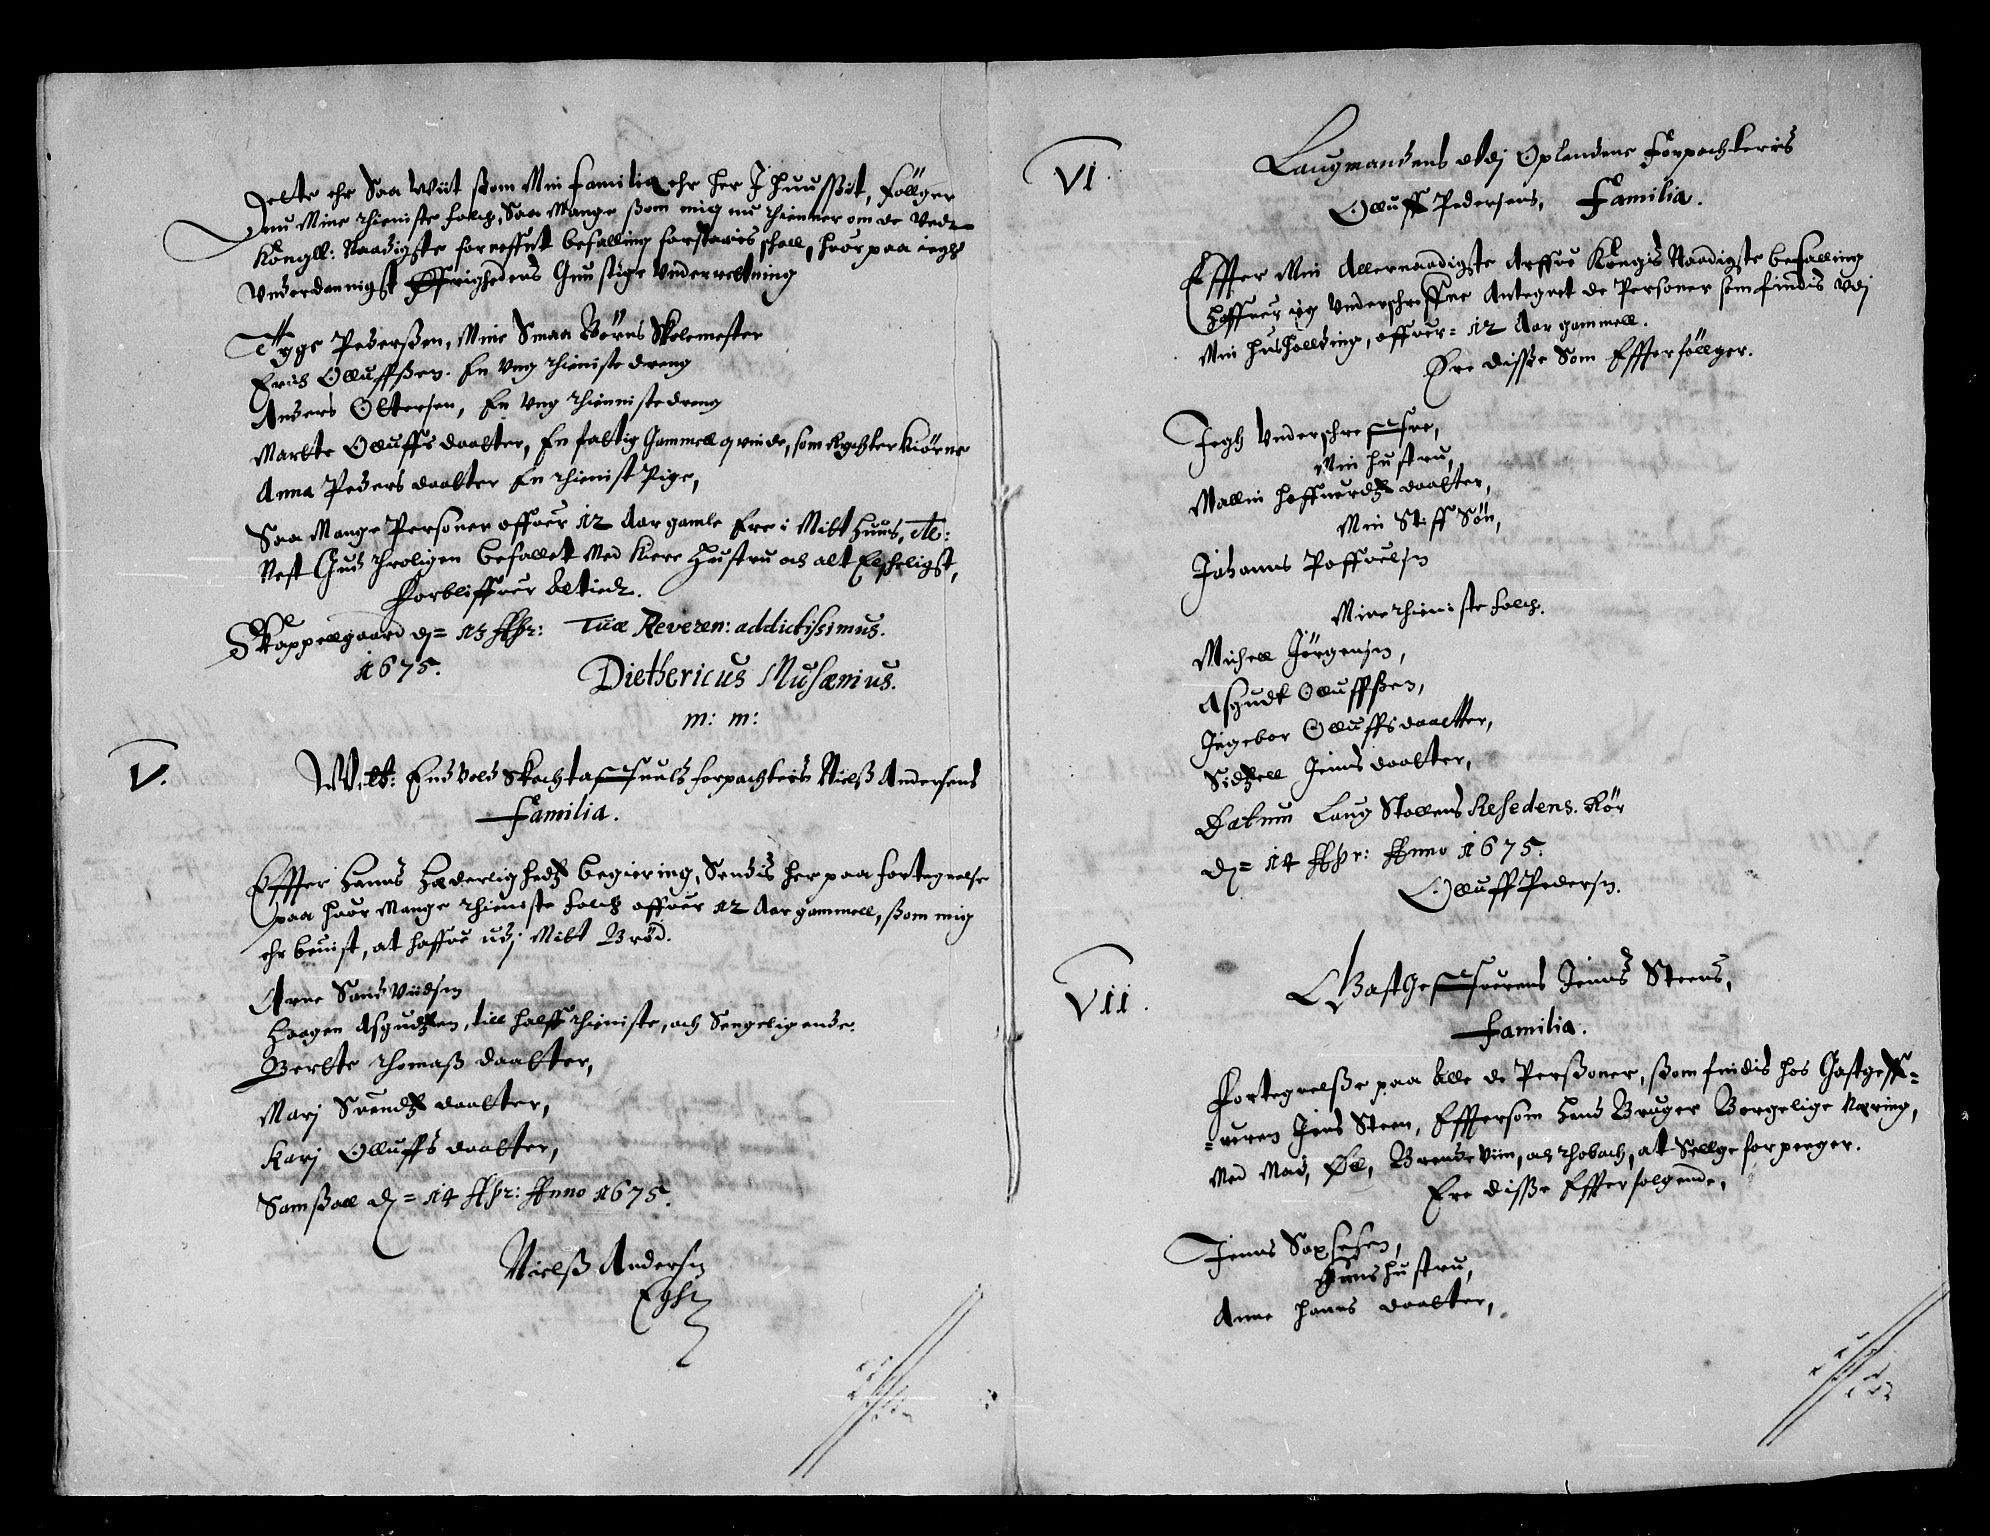 Dette ehr Saa Wiit ssom Min familia ehr her I huusset, Föllger
nu Mine thieniste folch, Saa Mange ssom mig nu thienner om de Ved
Kongll: Naadigste forneffnt befalling forstaaris schall, huor paa iegh
Underdannigst Öfrighedens Gunstige Underrettning
Tygge Pederssen, Mine Smaa Börns Skolemester
Erich Olluffssen. En Ung thieniste dreng
Anders Ottersen, En Ung thienniste dreng
Marite Olluffs daatter, En fattig Gammell qvinde, som Rychter Kiörne
Anna Peders daatter En thienist Pige,
Saa Mange Personer offuer 12 Aar gamle Ere i Mitt Huus, etc:
Nest Gud throligen befallet Med Kiere Hustru och alt Elscheligst,
Forbliffuer altied.
Skappellgaard d= 13 Apr: Tuæ Reveren: addictissimus.
1675.
Diethericus Musænius.
m: m:
V.
Witt: Eidsvold Skechta forpachters Nielss Andersens
Familia.
Effter Hanns Hæderligheds begiering, Sendis her paa fortegnelse
paa huor Mange thieniste folch offuer 12 Aar gammell, ssom mig
ehr beuist, at haffue udj Mitt Brød.
Arne Sandviidsn
Haagen Asgudssen, till halff thieniste, och Sengeligende.
Berite Thomass daatter,
Marj Suends daatter,
Karj Olluffs daatter,
Samssall d= 14 Apr: Anno 1675.
Nielss Andersn
Egh
VI.
Laugmandens udj Oplandene Forpachteris
Olluff Pedersens, Familia.
Effter Min Allernaadigste Arffue Kongis Naadigste befalling
Haffuer ieg Underschreffne Antegnet de Personer som findis udj
Min hushollding, offuer= 12 Aar gammell.
Ere disse Som Effterföllger.
Iegh Underschreffne,
Min hustru,
Mallin Haffuords daatter,
Min Stiff Søn,
Johannis Poffuelsn
Mine thieniste folch.
Michell Jörgensn,
Asgudt Olluffssen,
Ingebor Olluffs daatter,
Sidssell Jenns daatter,
Datum Laug Stollens Resedens. Rör
d= 14 Apr: Anno 1675.
Olluff Pedersn.
VII.
Gastgeffuerens Jenns Steens,
Familia.
Fortegnelsse paa Alle de Perssoner, ssom findis hos Gastgeff=
=ueren Jens Steen, Efftersom Hand Bruger Borgelige Næring,
Med Mad, Öll, Brende Viin, och Thobach, at Sellge for penger.
Ere disse Effterfolgende,
Jenns Saxesen,
Hans hustru,
Anne Hanns daatter,